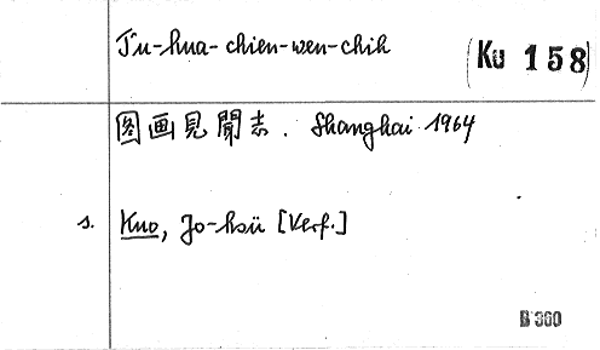 T'u-hua-chien-wen-chih
(Ku 158)
图画見聞志. Shanghai 1964
s. Kuo, Jo-hsü [Verf.]
B 360